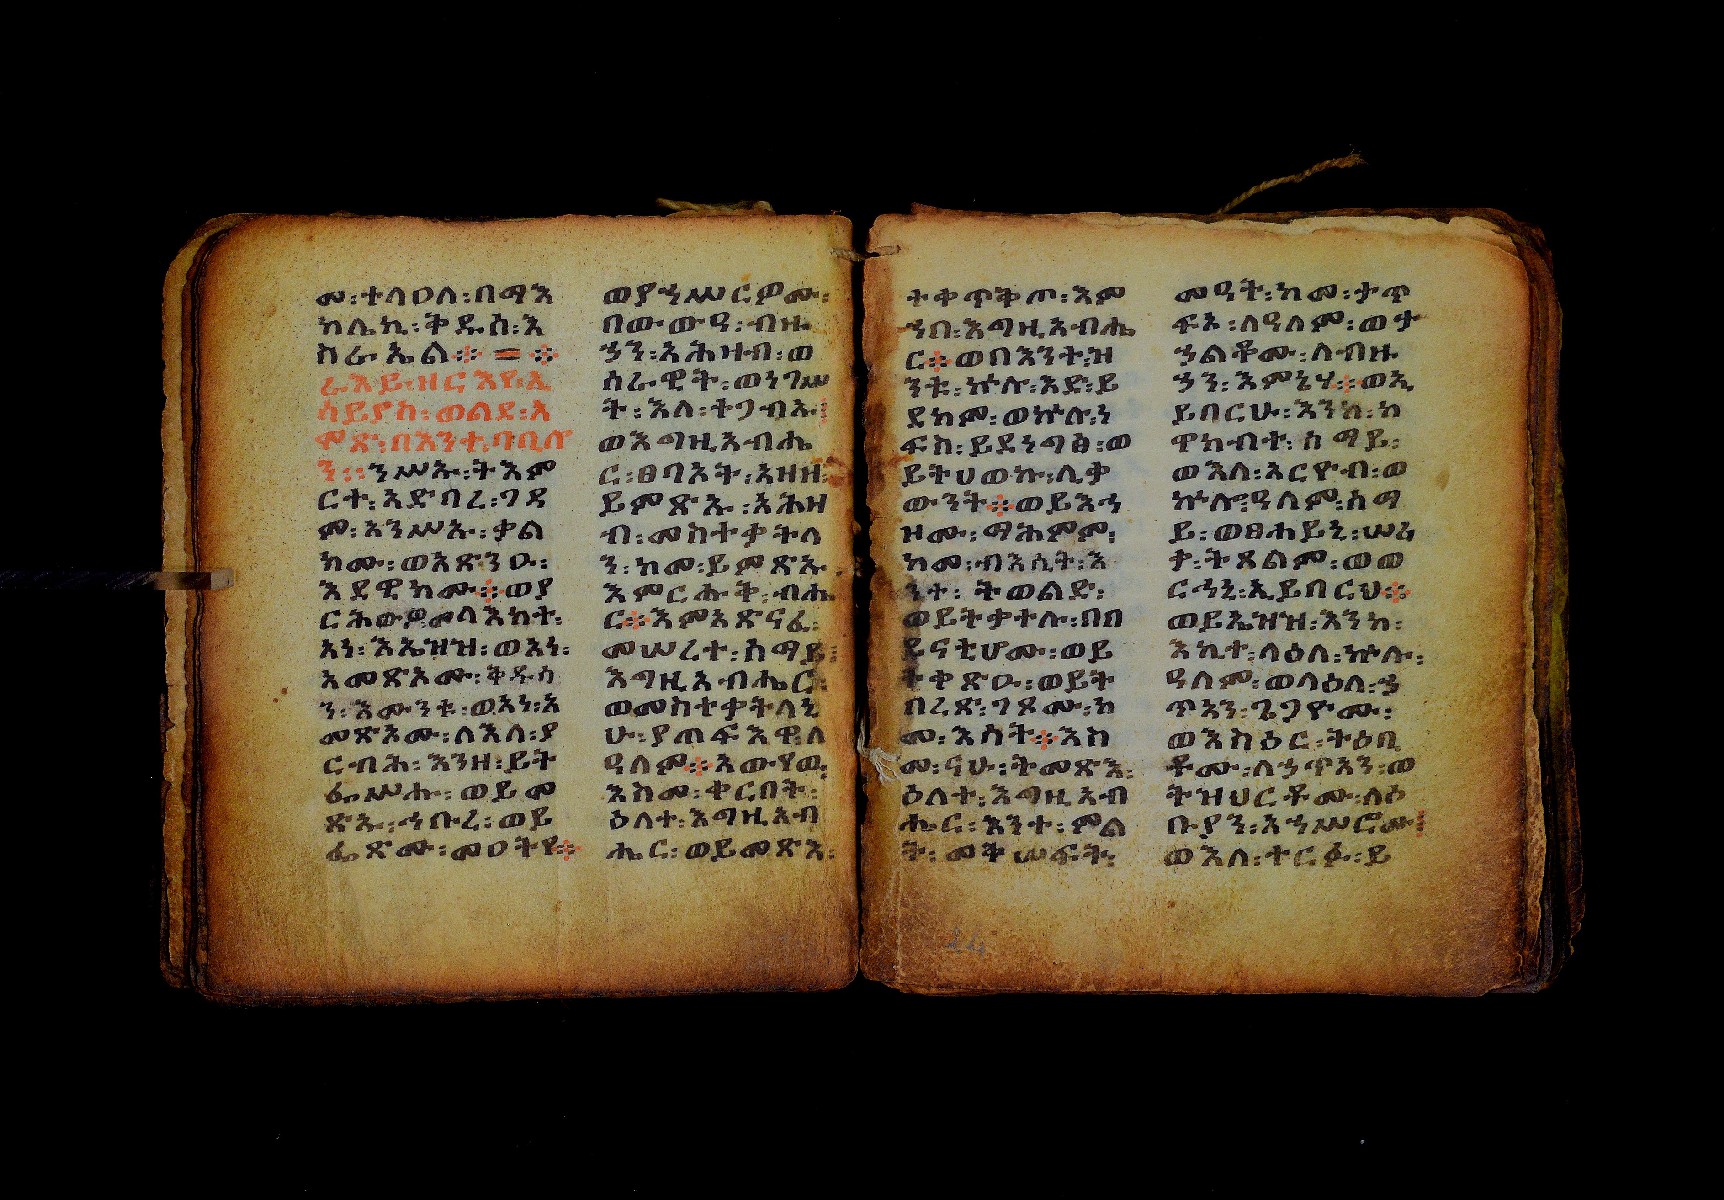 መ፡ተላዐለ፡በማእ
ከሌኪ፡ቅዱስ፡እ
ስራኤል፨=፨
ራእይ፡ዘርእየ፡ኢ
ሳይያስ፡ወልደ፡አ
ምጽ፡በእንተ፡ባቢሎ
ን፡፡ንሥኡ፡ትእም
ርተ፡እድብረ፡ገዳ
ም፡አንሥኡ፡ቃል
ክሙ፡ወአጽንዑ፡
እደዊክሙ፨ወያ
ርሕውዎ፡መላእክት፡
አነ፡እኤዝዝ፡ወአነ፡
አመጽኦሙ፡ቅዱሳ
ን፡እሙንቱ፡ወአነ፡አ
መጽኦሙ፡ለእለ፡ያ
ርብሕ፡እንዘ፡ይት
ፌሥሑ፡ወይመ
ጽኡ፡ኅቡረ፡ወይ
ፌጽሙ፡መዐትየ፨
ወያኀሥርዎሙ፡
በውውዓ፡ብዙ
ኃን፡አሕዛብ፡ወ
ሰራዊት፡ወነገሥ
ት፡እለ፡ትጋብኡ፡
ወእግዚአብሔ
ር፡ፀባኦት፡አዘዘ፡
ይምጽኡ፡አሕዛ
ብ፡መስተቃትላ
ን፡ከመ፡ይምጽኡ
እምርሑቅ፡ብሔ
ር፨እምአጽናፈ፡
መሠረተ፡ሰማይ፡
እግዚአብሔር፡
ወመስተቃትላኒ
ሁ፡ያጠፍእዋ፡ለ
ዓለም፨አውየዉ
እስመ፡ቀርበት፡
ዕለተ፡እግዚአብ
ሔር፡ወይመጽእ፡
ተቀጥቅጦ፡እም
ኀበ፡እግዚአብሔ
ር፨ወበእንተ፡ዝ
ንቱ፡ኵሉ፡እድ፡ይ
ደክም፡ወኵሉ፡ነ
ፍስ፡ይደነግፅ፡ወ
ይትሀወኩ፡ሊቃ
ውንት፨ወይእኅ
ዞሙ፡ማሕምም፡
ከመ፡ብእሲት፡እ
ንተ፡ትወልድ፡
ወይትቃተሉ፡በበ
ይናቲሆሙ፡ወይ
ትቀጽዑ፡ወይት
በረጽ፡ገጾሙ፡ከ
መ፡እሳት፨እስ
መ፡ናሁ፡ትመጽእ፡
ዕለተ፡እግዚአብ
ሔር፡እንተ፡ምል
ት፡መቅሠፍት፡
መዓት፡ከመ፡ታጥ
ፍኦ፡ለዓለም፡ወታ
ኃልቆሙ፡ለብዙ
ኃን፡እምኔሃ፡፡ወኢ
ይበርሁ፡እንከ፡ከ
ዋክብተ፡ሰማይ፡
ወእለ፡አርዮብ፡ወ
ኵሎ፡ዓለም፡ሰማ
ይ፡ወፀሐይኒ፡ሠሪ
ቃ፡ትጸልም፡ወወ
ርኅኒ፡ኢይበርህ፨
ወይኤዝዝ፡እንከ፡
እኪተ፡ላዕለ፡ኵሉ፡
ዓለም፡ወላዕለ፡ኃ
ጥኣን፡ጌጋዮሙ፡
ወእስዕር፡ትዕቢ
ቶሙ፡ለኃጥኣን፡ወ
ትዝህርቶሙ፡ለዕ
ቡያን፡አኀሥሮሙ፡
ወእለ፡ተርፉ፡ይ